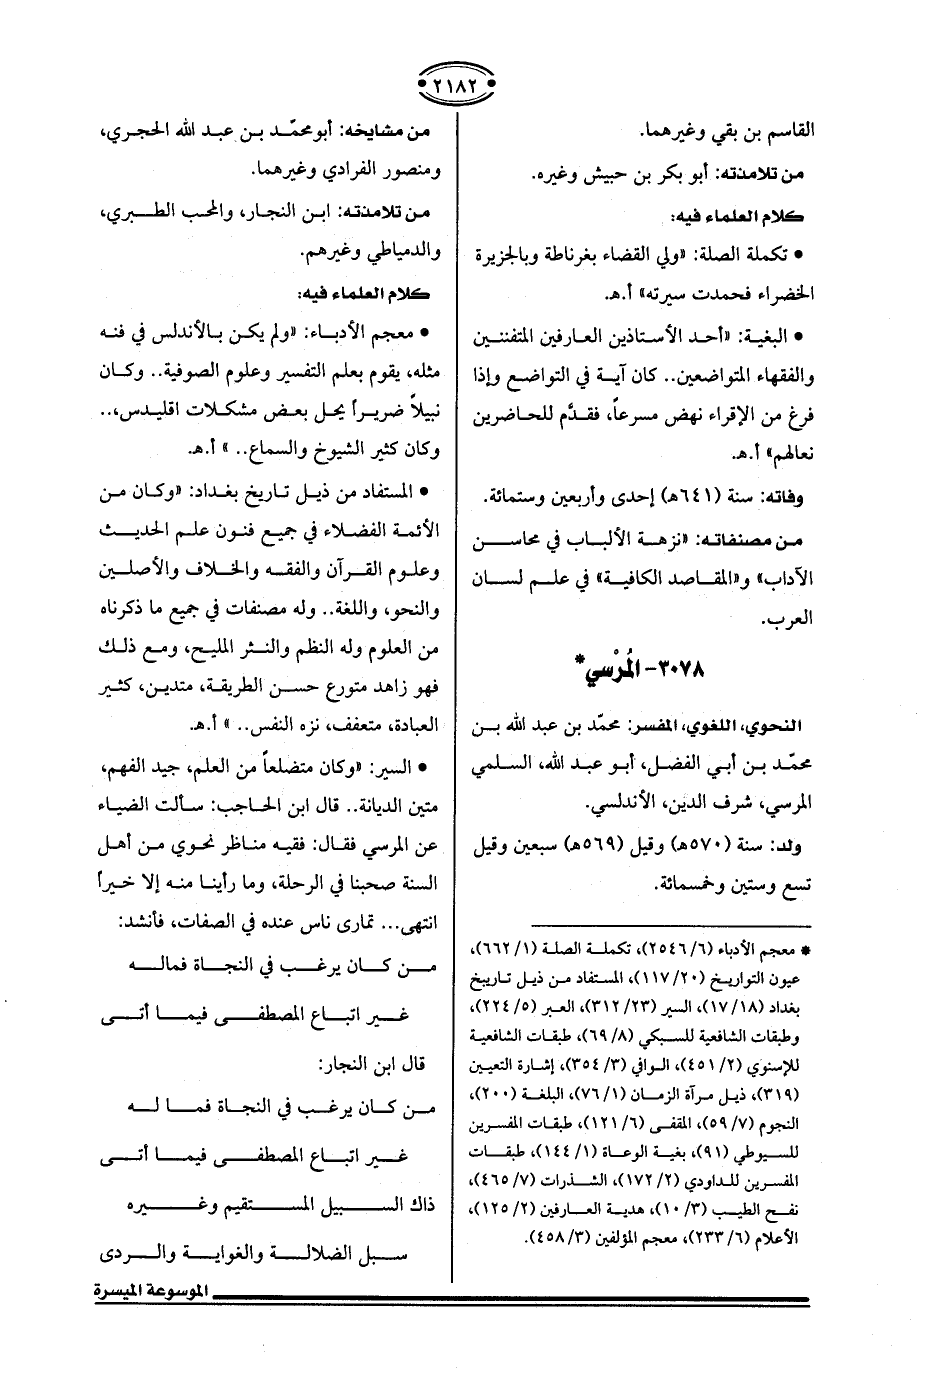 ٢١٨٢
القاسم بن بقي وغيرهما.
من تلامذته: أبو بكر بن حبيش وغيره.
كلام العلماء فيه:
• تكملة الصلة: «ولي القضاء بغرناطة وبالجزيرة
الخضراء فحمدت سيرته» أ.هـ.
• البغية: «أحد الأستاذين العارفين المتفننين
والفقهاء المتواضعين.. كان آية في التواضع وإذا
فرغ من الإقراء نهض مسرعاً، فقدَّم للحاضرين
نعالهم» أ.هـ.
وفاته: سنة (٦٤١هـ) إحدى وأربعين وستمائة.
من مصنفاته: «نزهة الألباب في محاسن
الآداب» و«المقاصد الكافية» في علم لسان
العرب.
٣٠٧٨- المُرْسي*
النحوي، اللغوي، المفسر: محمّد بن عبد الله بن
محمّد بن أبي الفضل، أبو عبد الله، السلمي
المرسي، شرف الدين، الأندلسي.
ولد: سنة (٥٧٠هـ) وقيل (٥٦٩هـ) سبعين وقيل
تسع وستين وخمسمائة.
* معجم الأدباء (٦/ ٢٥٤٦)، تكملة الصلة (١/ ٦٦٢)،
عيون التواريخ (٢٠/ ١١٧)، المستفاد من ذيل تاريخ
بغداد (١٨/ ١٧)، السير (٢٣/ ٣١٢)، العبر (٥/ ٢٢٤)،
وطبقات الشافعية للسبكي (٨/ ٦٩)، طبقات الشافعية
للإسنوي (٢/ ٤٥١)، الوافي (٣/ ٣٥٤)، إشارة التعيين
(٣١٩)، ذيل مرآة الزمان (١/ ٧٦)، البلغة (٢٠٠)،
النجوم (٧/ ٥٩)، المقفى (٦/ ١٢١)، طبقات المفسرين
للسيوطي (٩١)، بغية الوعاة (١/ ١٤٤)، طبقات
المفسرين للداودي (٢/ ١٧٢)، الشذرات (٧/ ٤٦٥)،
نفح الطيب (٣/ ١٠)، هدية العارفين (٢/ ١٢٥)،
الأعلام (٦/ ٢٣٣)، معجم المؤلفين (٣/ ٤٥٨).
من مشايخه: أبو محمّد بن عبد الله الحجري،
ومنصور الفرادي وغيرهما.
من تلامذته: ابن النجار، والمحب الطبري،
والدمياطي وغيرهم.
كلام العلماء فيه:
• معجم الأدباء: «ولم يكن بالأندلس في فنه
مثله، يقوم بعلم التفسير وعلوم الصوفية.. وكان
نبيلاً ضريراً يحل بعض مشكلات اقليدس،..
وكان كثير الشيوخ والسماع.. » أ.هـ.
• المستفاد من ذيل تاريخ بغداد: «وكان من
الأئمة الفضلاء في جميع فنون علم الحديث
وعلوم القرآن والفقه والخلاف والأصلين
والنحو، واللغة.. وله مصنفات في جميع ما ذكرناه
من العلوم وله النظم والنثر المليح، ومع ذلك
فهو زاهد متورع حسن الطريقة، متدين، كثير
العبادة، متعفف، نزه النفس.. » أ.هـ.
• السير: «وكان متضلعاً من العلم، جيد الفهم،
متين الديانة.. قال ابن الحاجب: سألت الضياء
عن المرسي فقال: فقيه مناظر نحوي من أهل
السنة صحبنا في الرحلة، وما رأينا منه إلا خيراً
انتهى... تمارى ناس عنده في الصفات، فأنشد:
من كان يرغب في النجاة فماله
غير اتباع المصطفى فيما أتى
قال ابن النجار:
من كان يرغب في النجاة فما له
غير اتباع المصطفى فيما أتى
ذاك السبيل المستقيم وغيره
سبل الضلالة والغواية والردى
الموسوعة الميسرة